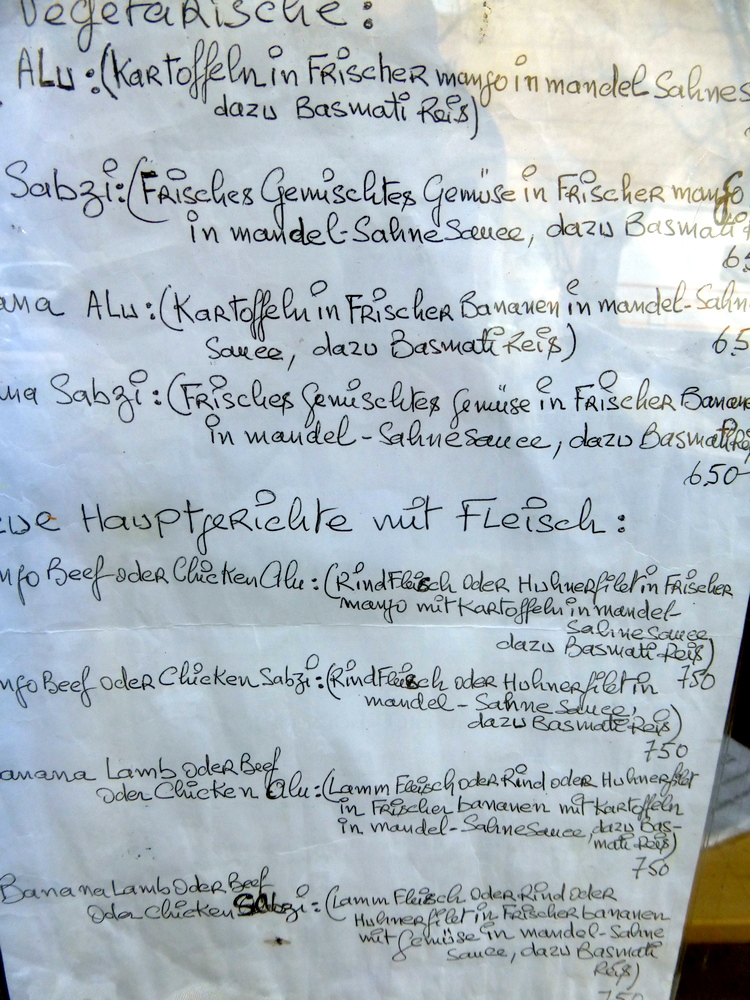 Vegetarische:
Alu:(Kartoffeln in Frischer mango in mandel Sahnes
dazu Basmati Reis)
Sabzi:(Frisches Gemischtes Gemüse in Frischer mango
in mandel-Sahne Sauce, dazu Basmati
6.5
ana Alu:(Kartoffeln in Frischer Bananen in mandel-Sahn
Sauce, dazu Basmati Reis)
6.5
na Sabzi:(Frisches Gemischtes Gemüse in Frischer Banane
in mandel-Sahne sauce, dazu Basmati Re
6,50
Hauptgerichte mit Fleisch:
ngo Beef oder Chicken Alu:(Rindfleisch oder Huhnerfilet in Frischer
mango mit Kartoffeln in mandel-
Sahne sauce
dazu Basmati Reis)
750
ngo Beef oder Chicken Sabzi:(Rindfleisch oder Huhnerfilet in
mandel-Sahne Sauce,
dazu Basmati Reis)
750
anana Lamb oder Beef
oder Chicken Alu:(Lamm Fleisch oder Rind oder Huhnerfilet
in Frischer bananen mit Kartoffeln
in mandel-Sahne sauce, dazu Bas-
mati Reis)
750
Banana Lamb Oder Beef
Oder Chicken Sabzi:(Lamm Fleisch Oder Rind oder
Huhnerfilet in Frischer bananen
mit Gemüse in mandel-Sahne
Sauce, dazu Basmati
Reis)
750